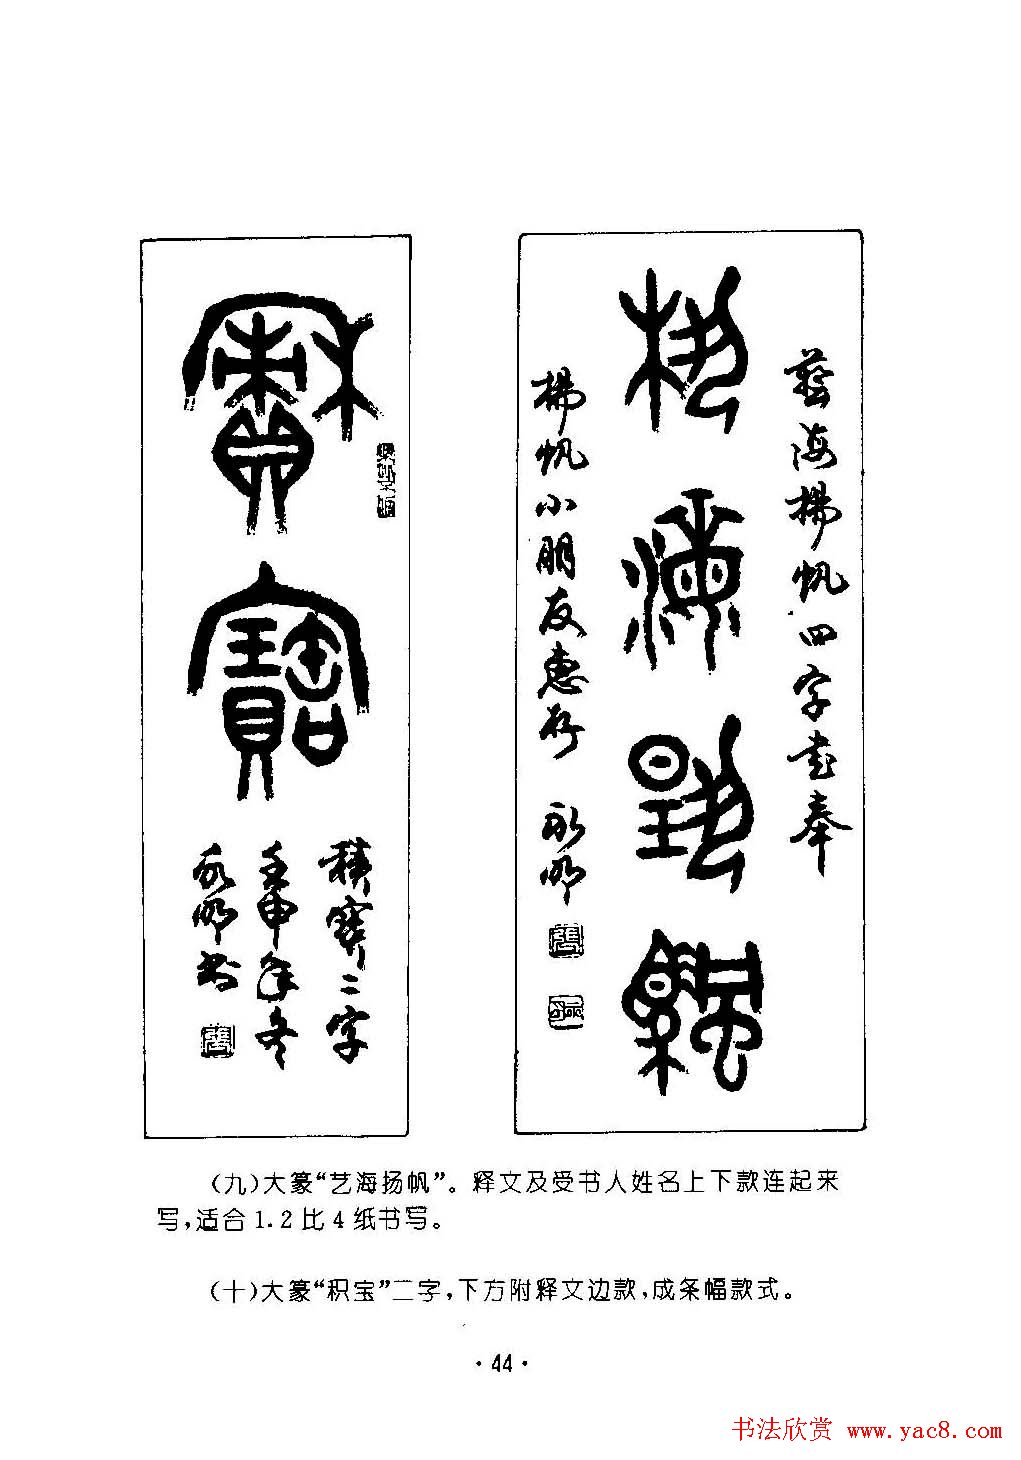 藝海揚帆
藝海揚帆四字书奉
揚帆小朋友惠存 永明
積寶
積寳二字
壬申年冬
永明书
(九)大篆“艺海扬帆”。释文及受书人姓名上下款连起来
写,适合1.2比4纸书写。
(十)大篆“积宝”二字,下方附释文边款,成条幅款式。
·44·
书法欣赏 www.yac8.com